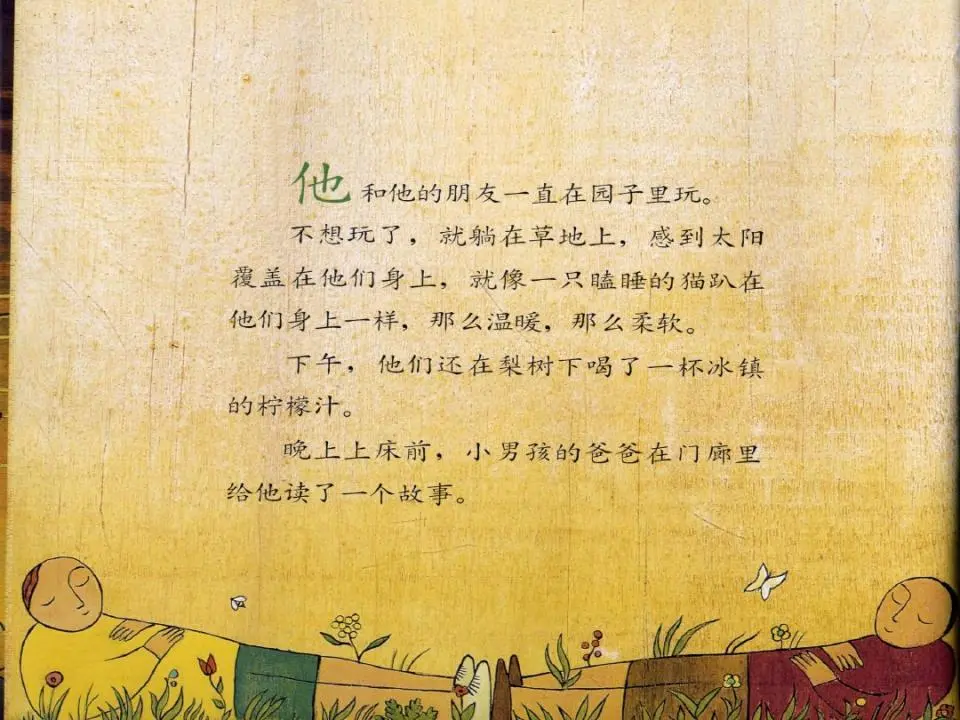 他和他的朋友一直在园子里玩。
不想玩了，就躺在草地上，感到太阳
覆盖在他们身上，就像一只瞌睡的猫趴在
他们身上一样，那么温暖，那么柔软。
下午，他们还在梨树下喝了一杯冰镇
的柠檬汁。
晚上上床前，小男孩的爸爸在门廊里
给他读了一个故事。